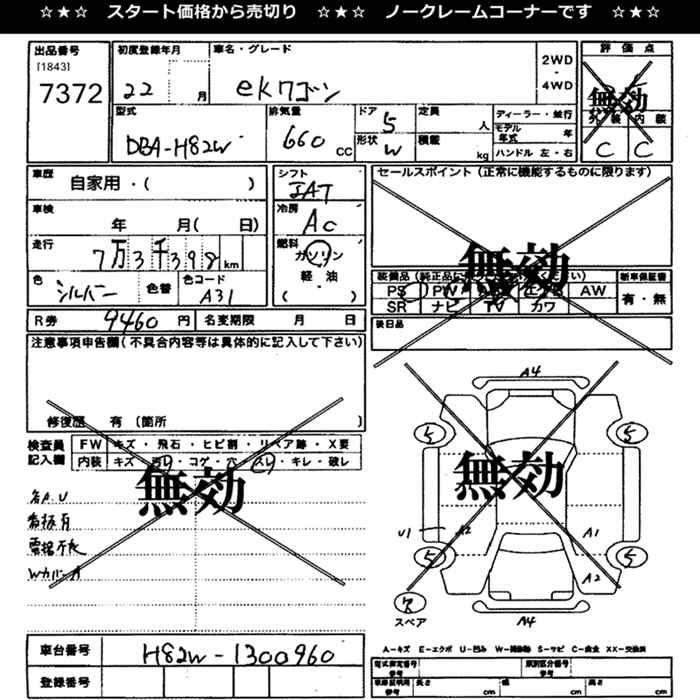 ☆★☆ スタート価格から売切り ☆★☆ ノークレームコーナーです ☆★☆
出品番号
[1843]
7372
初度登録年月
22 月
車名・グレード
ekワゴン
2WD
・
4WD
評価点
無効
外装 内装
C C
型式
DBA-H82W
排気量
660 CC
ドア 5
形状 W
定員 人
積載 kg
ディーラー・並行
モデル年式 年
ハンドル 左・右
車歴
自家用・( )
車検
年 月( 日)
走行
7万3千398km
色
シルバー
色替
色コード
A31
シフト
IAT
冷房
AC
燃料
ガソリン
軽・油
( )
セールスポイント(正常に機能するものに限ります)
無効
新車保証書
有・無
PS PW AW
SR ナビ TV カワ
後日品
R券 9460 円 名変期限 月 日
注意事項申告欄(不具合内容等は具体的に記入して下さい)
修復歴 有(箇所 )
検査員
記入欄
FW キズ・飛石・ヒビ割・リペア跡・X要
内装 キズ・汚レ・コゲ・穴・スレ・キレ・破レ
無効
各A.U
看板有
電格不良
WカバーA
A4
5 5
無効
U1 A2 A1
5 5
A2
ス
スペア
A4
A-キズ E-エクボ U-凹み W-補修跡 S-サビ C-腐食 XX-交換済
車台番号
H82W-1300960
登録番号
型式指定番号
参考
類別区分番号
参考
車庫証明用
参考
長さ cm 幅 cm 高さ cm